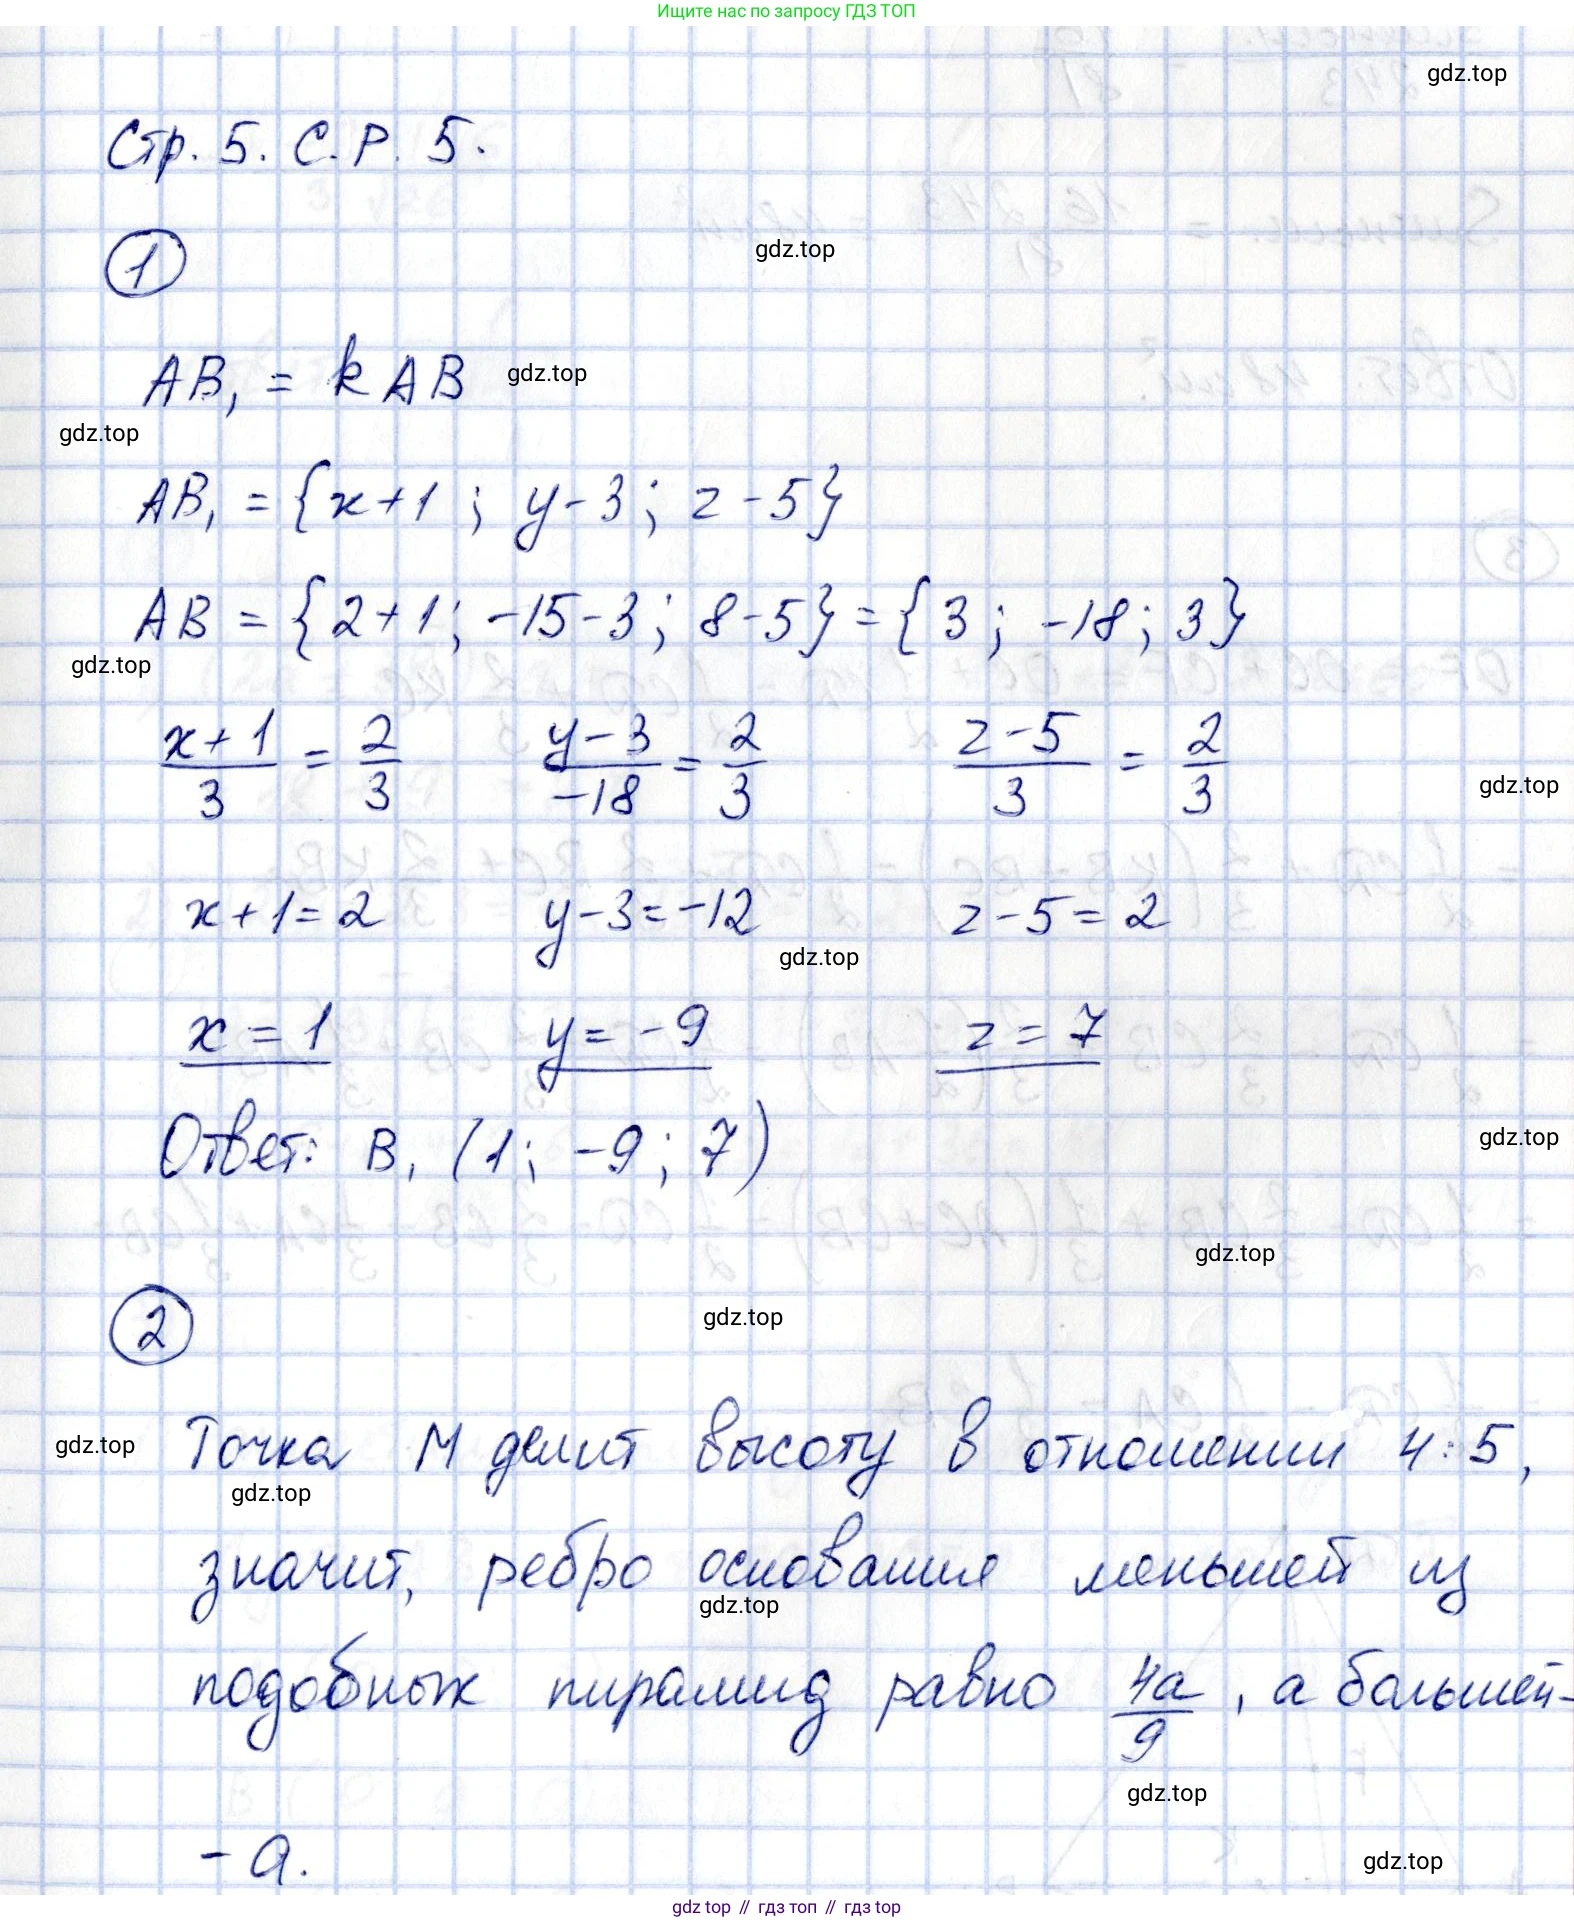 Ищите нас по запросу ГДЗ ТОП
gdz.top
Стр. 5. С.Р. 5.
1
gdz.top
AB₁ = k AB
gdz.top
gdz.top
AB₁ = {x+1 ; y-3 ; z-5}
AB = {2+1; -15-3; 8-5} = {3; -18; 3}
gdz.top
(x+1)/3 = 2/3 (y-3)/(-18) = 2/3 (z-5)/3 = 2/3
gdz.top
x+1=2 y-3=-12 z-5=2
gdz.top
x=1 y=-9 z=7
Ответ: B₁ (1; -9; 7)
gdz.top
gdz.top
2
gdz.top
Точка M делит высоту в отношении 4:5,
gdz.top
gdz.top
значит, ребро основания меньшей из
gdz.top
подобных пирамид равно 4a/9, а большей-
gdz.top
- a.
gdz.top
gdz.top // гдз топ // gdz.top